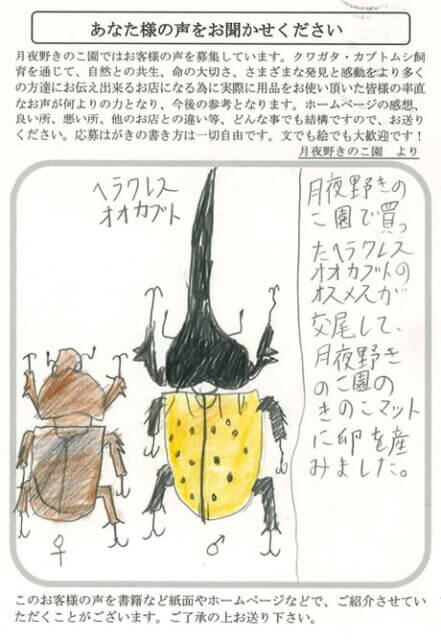 あなた様の声をお聞かせください
月夜野きのこ園ではお客様の声を募集しています。クワガタ・カブトムシ飼
育を通じて、自然との共生、命の大切さ、さまざまな発見と感動をより多く
の方達にお伝え出来るお店になる為に実際に用品をお使い頂いた皆様の率直
なお声が何よりの力となり、今後の参考となります。ホームページの感想、
良い所、悪い所、他のお店との違い等、どんな事でも結構ですので、お送り
ください。応募はがきの書き方は一切自由です。文でも絵でも大歓迎です！
月夜野きのこ園　より
ヘラクレス
オオカブト
♀
♂
月夜野きの
こ園で買っ
たヘラクレス
オオカブトの
オスメスが
交尾して、
月夜野き
のこ園の
きのこマット
に卵を産
みました。
このお客様の声を書籍など紙面やホームページなどで、ご紹介させてい
ただくことがございます。ご了承の上お送り下さい。